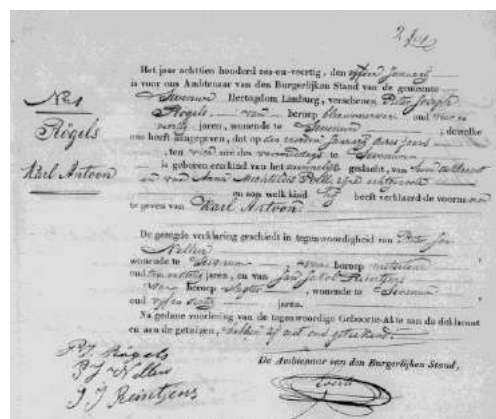 No 1
Rögels
Karl Antoon
Het jaar achttien honderd zes-en-veertig, den vyfden January
is voor ons Ambtenaar van den Burgerlijken Stand van de gemeente
Sevenum Hertogdom Limburg, verschenen Pieter Joseph
Rögels van beroep oud vier en
veertig jaren, wonende te Sevenum ; dewelke
ons heeft aangegeven, dat op den January dezes jaars
ten vier ure des voormiddags te Sevenum
is geboren een kind van het mannelijk geslacht, van hem declarant
en van Anna Mechtildis zijne echtgenoote
en aan welk kind hij heeft verklaard de voornamen
te geven van Karl Antoon
De gezegde verklaring geschiedt in tegenwoordigheid van Peter Jan
Nellen
wonende te Sevenum van beroep
oud jaren, en van Jan Jakob Reintjens
van beroep , wonende te Sevenum
oud jaren.
Na gedane voorlezing van de tegenwoordige Geboorte-Akte aan de deklarant
en aan de getuigen, hebben zij met ons geteekend.
De Ambtenaar van den Burgerlijken Stand,
P J Rögels
P J Nellen
J J Reintjens